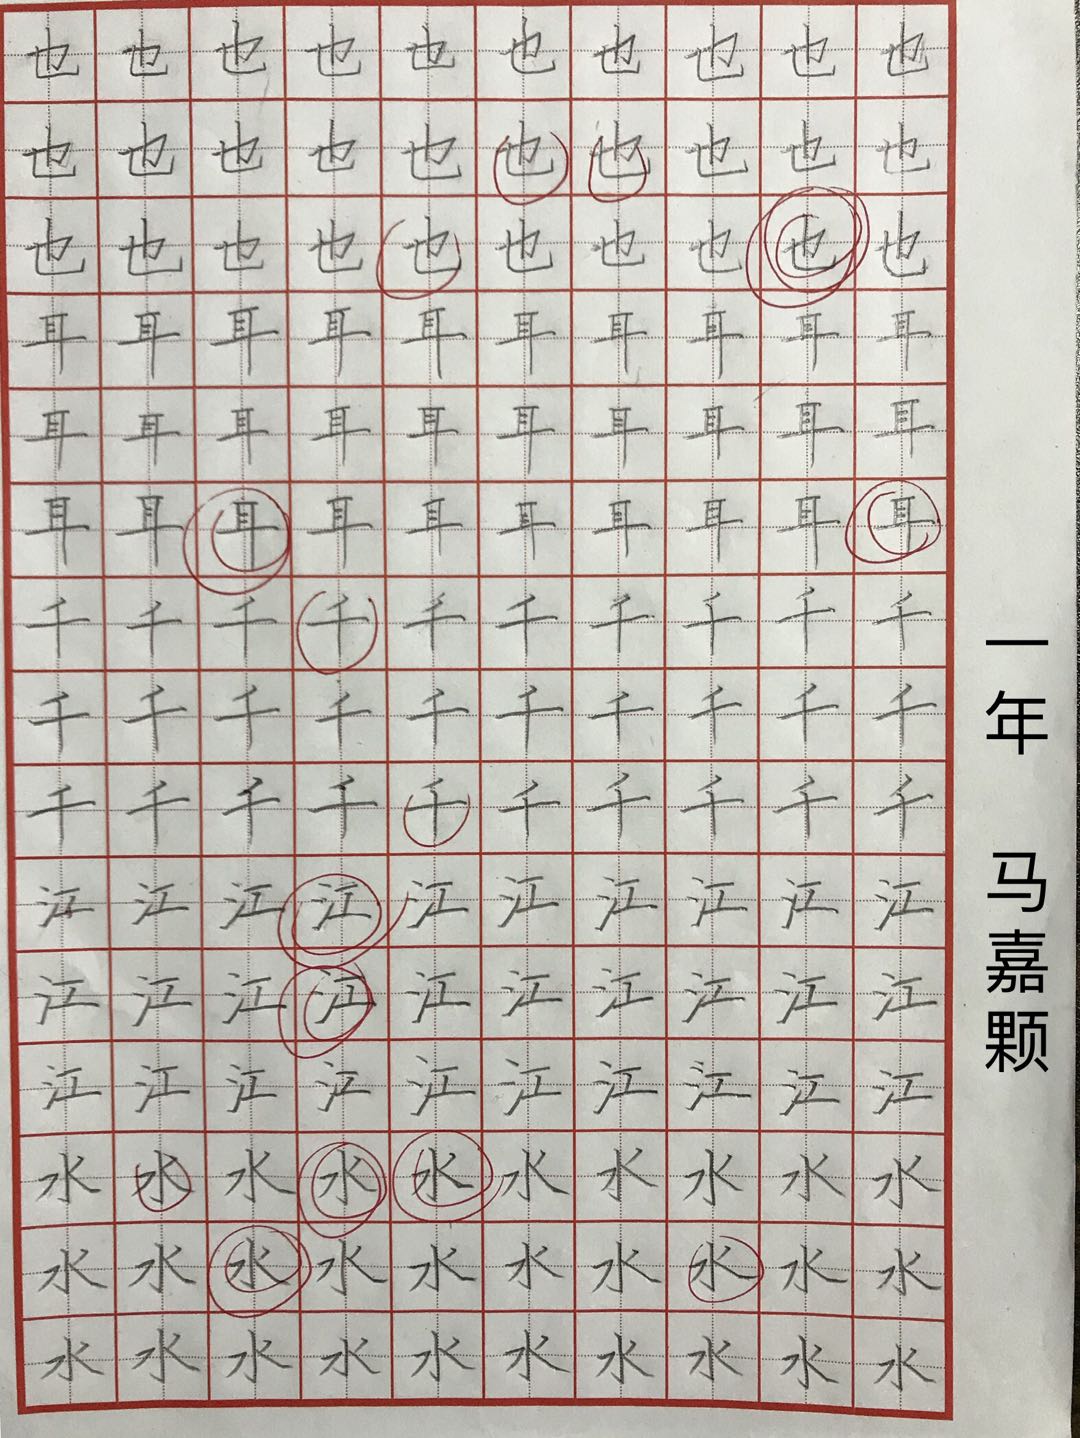 也也也也也也也也也也
也也也也也也也也也也
也也也也也也也也也也
耳耳耳耳耳耳耳耳耳耳
耳耳耳耳耳耳耳耳耳耳
耳耳耳耳耳耳耳耳耳耳
千千千千千千千千千千
千千千千千千千千千千
千千千千千千千千千千
江江江江江江江江江江
江江江江江江江江江江
江江江江江江江江江江
水水水水水水水水水水
水水水水水水水水水水
水水水水水水水水水水
一年 马嘉颗